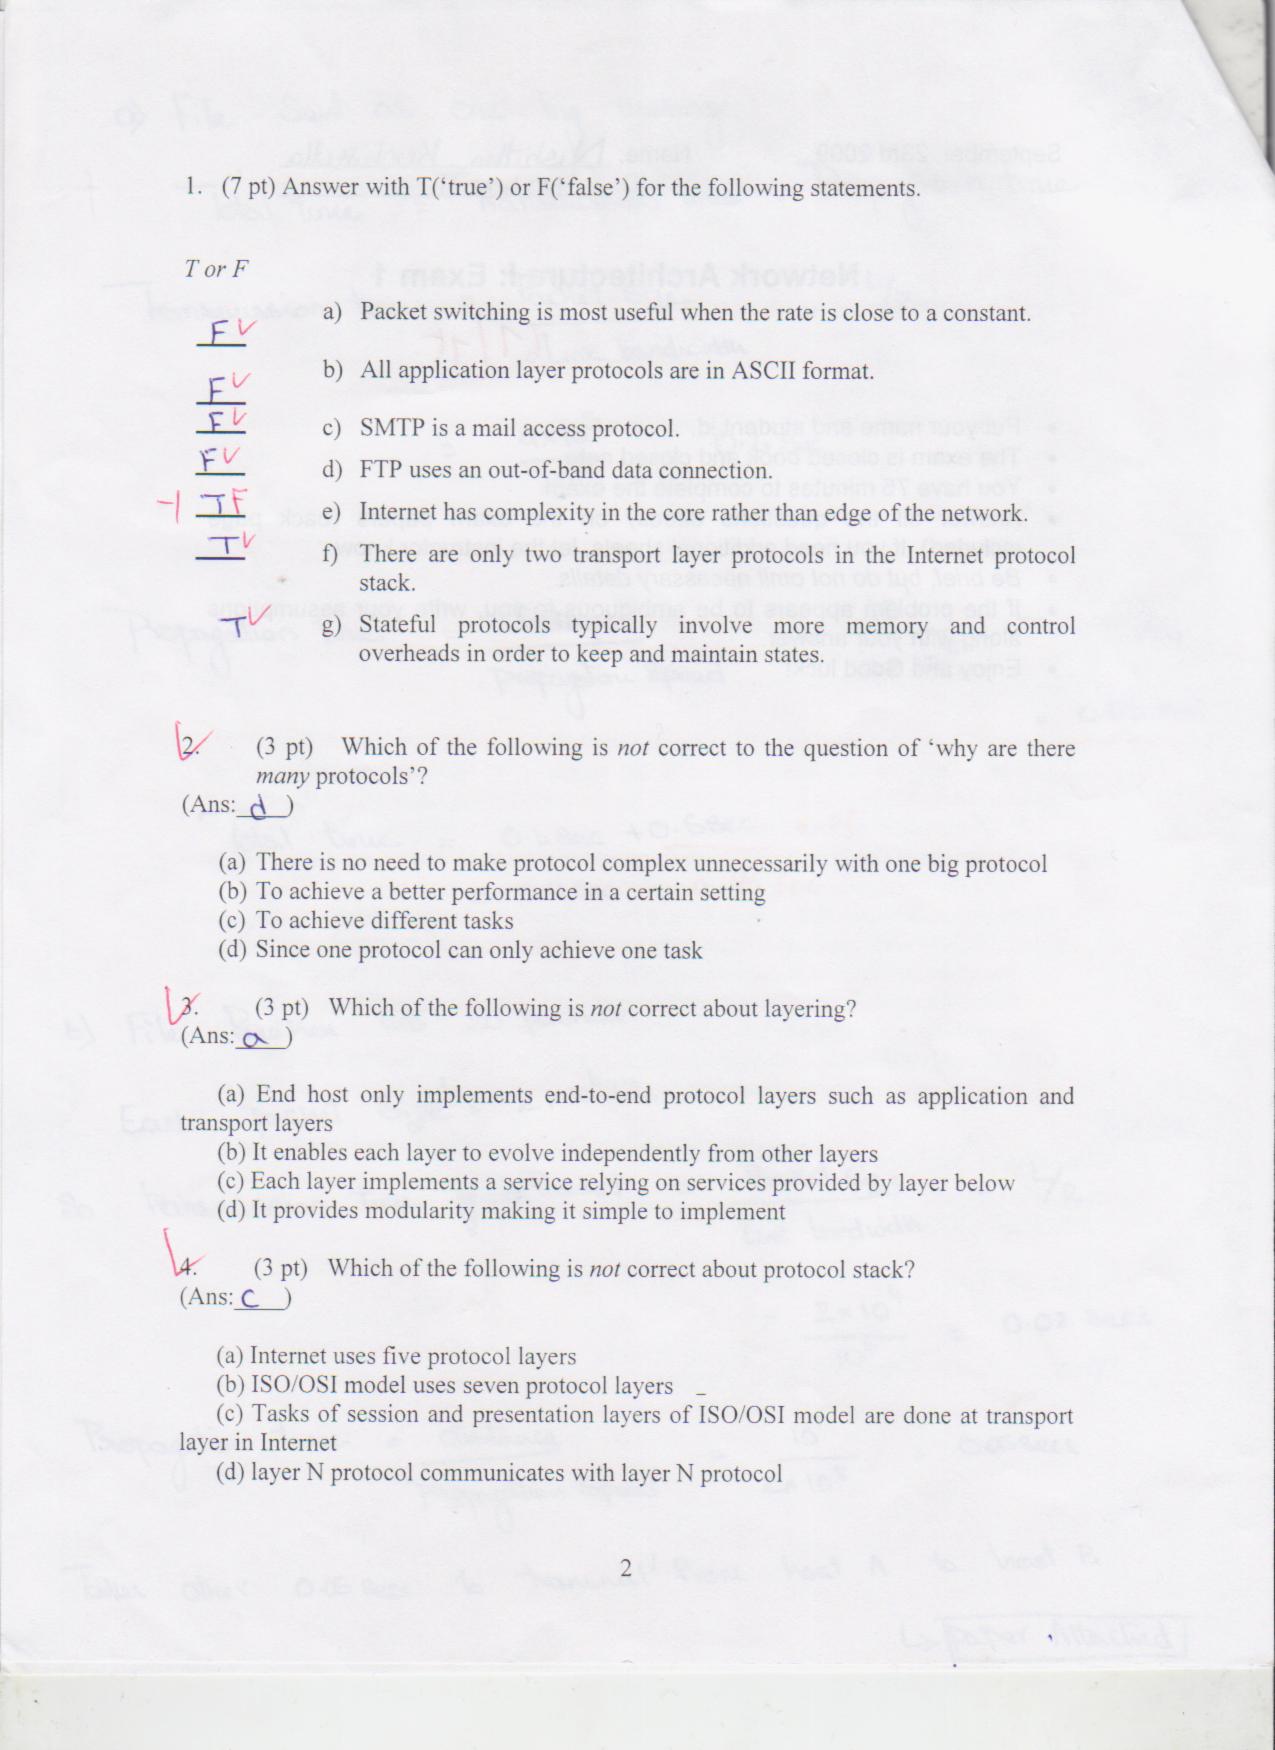 1. (7 pt) Answer with T('true') or F('false') for the following statements.
T or F
F a) Packet switching is most useful when the rate is close to a constant.
F b) All application layer protocols are in ASCII format.
F c) SMTP is a mail access protocol.
F d) FTP uses an out-of-band data connection.
-1 T F e) Internet has complexity in the core rather than edge of the network.
T f) There are only two transport layer protocols in the Internet protocol
stack.
T g) Stateful protocols typically involve more memory and control
overheads in order to keep and maintain states.
2. (3 pt) Which of the following is not correct to the question of 'why are there
many protocols'?
(Ans: d )
(a) There is no need to make protocol complex unnecessarily with one big protocol
(b) To achieve a better performance in a certain setting
(c) To achieve different tasks
(d) Since one protocol can only achieve one task
3. (3 pt) Which of the following is not correct about layering?
(Ans: a )
(a) End host only implements end-to-end protocol layers such as application and
transport layers
(b) It enables each layer to evolve independently from other layers
(c) Each layer implements a service relying on services provided by layer below
(d) It provides modularity making it simple to implement
4. (3 pt) Which of the following is not correct about protocol stack?
(Ans: C )
(a) Internet uses five protocol layers
(b) ISO/OSI model uses seven protocol layers
(c) Tasks of session and presentation layers of ISO/OSI model are done at transport
layer in Internet
(d) layer N protocol communicates with layer N protocol
2